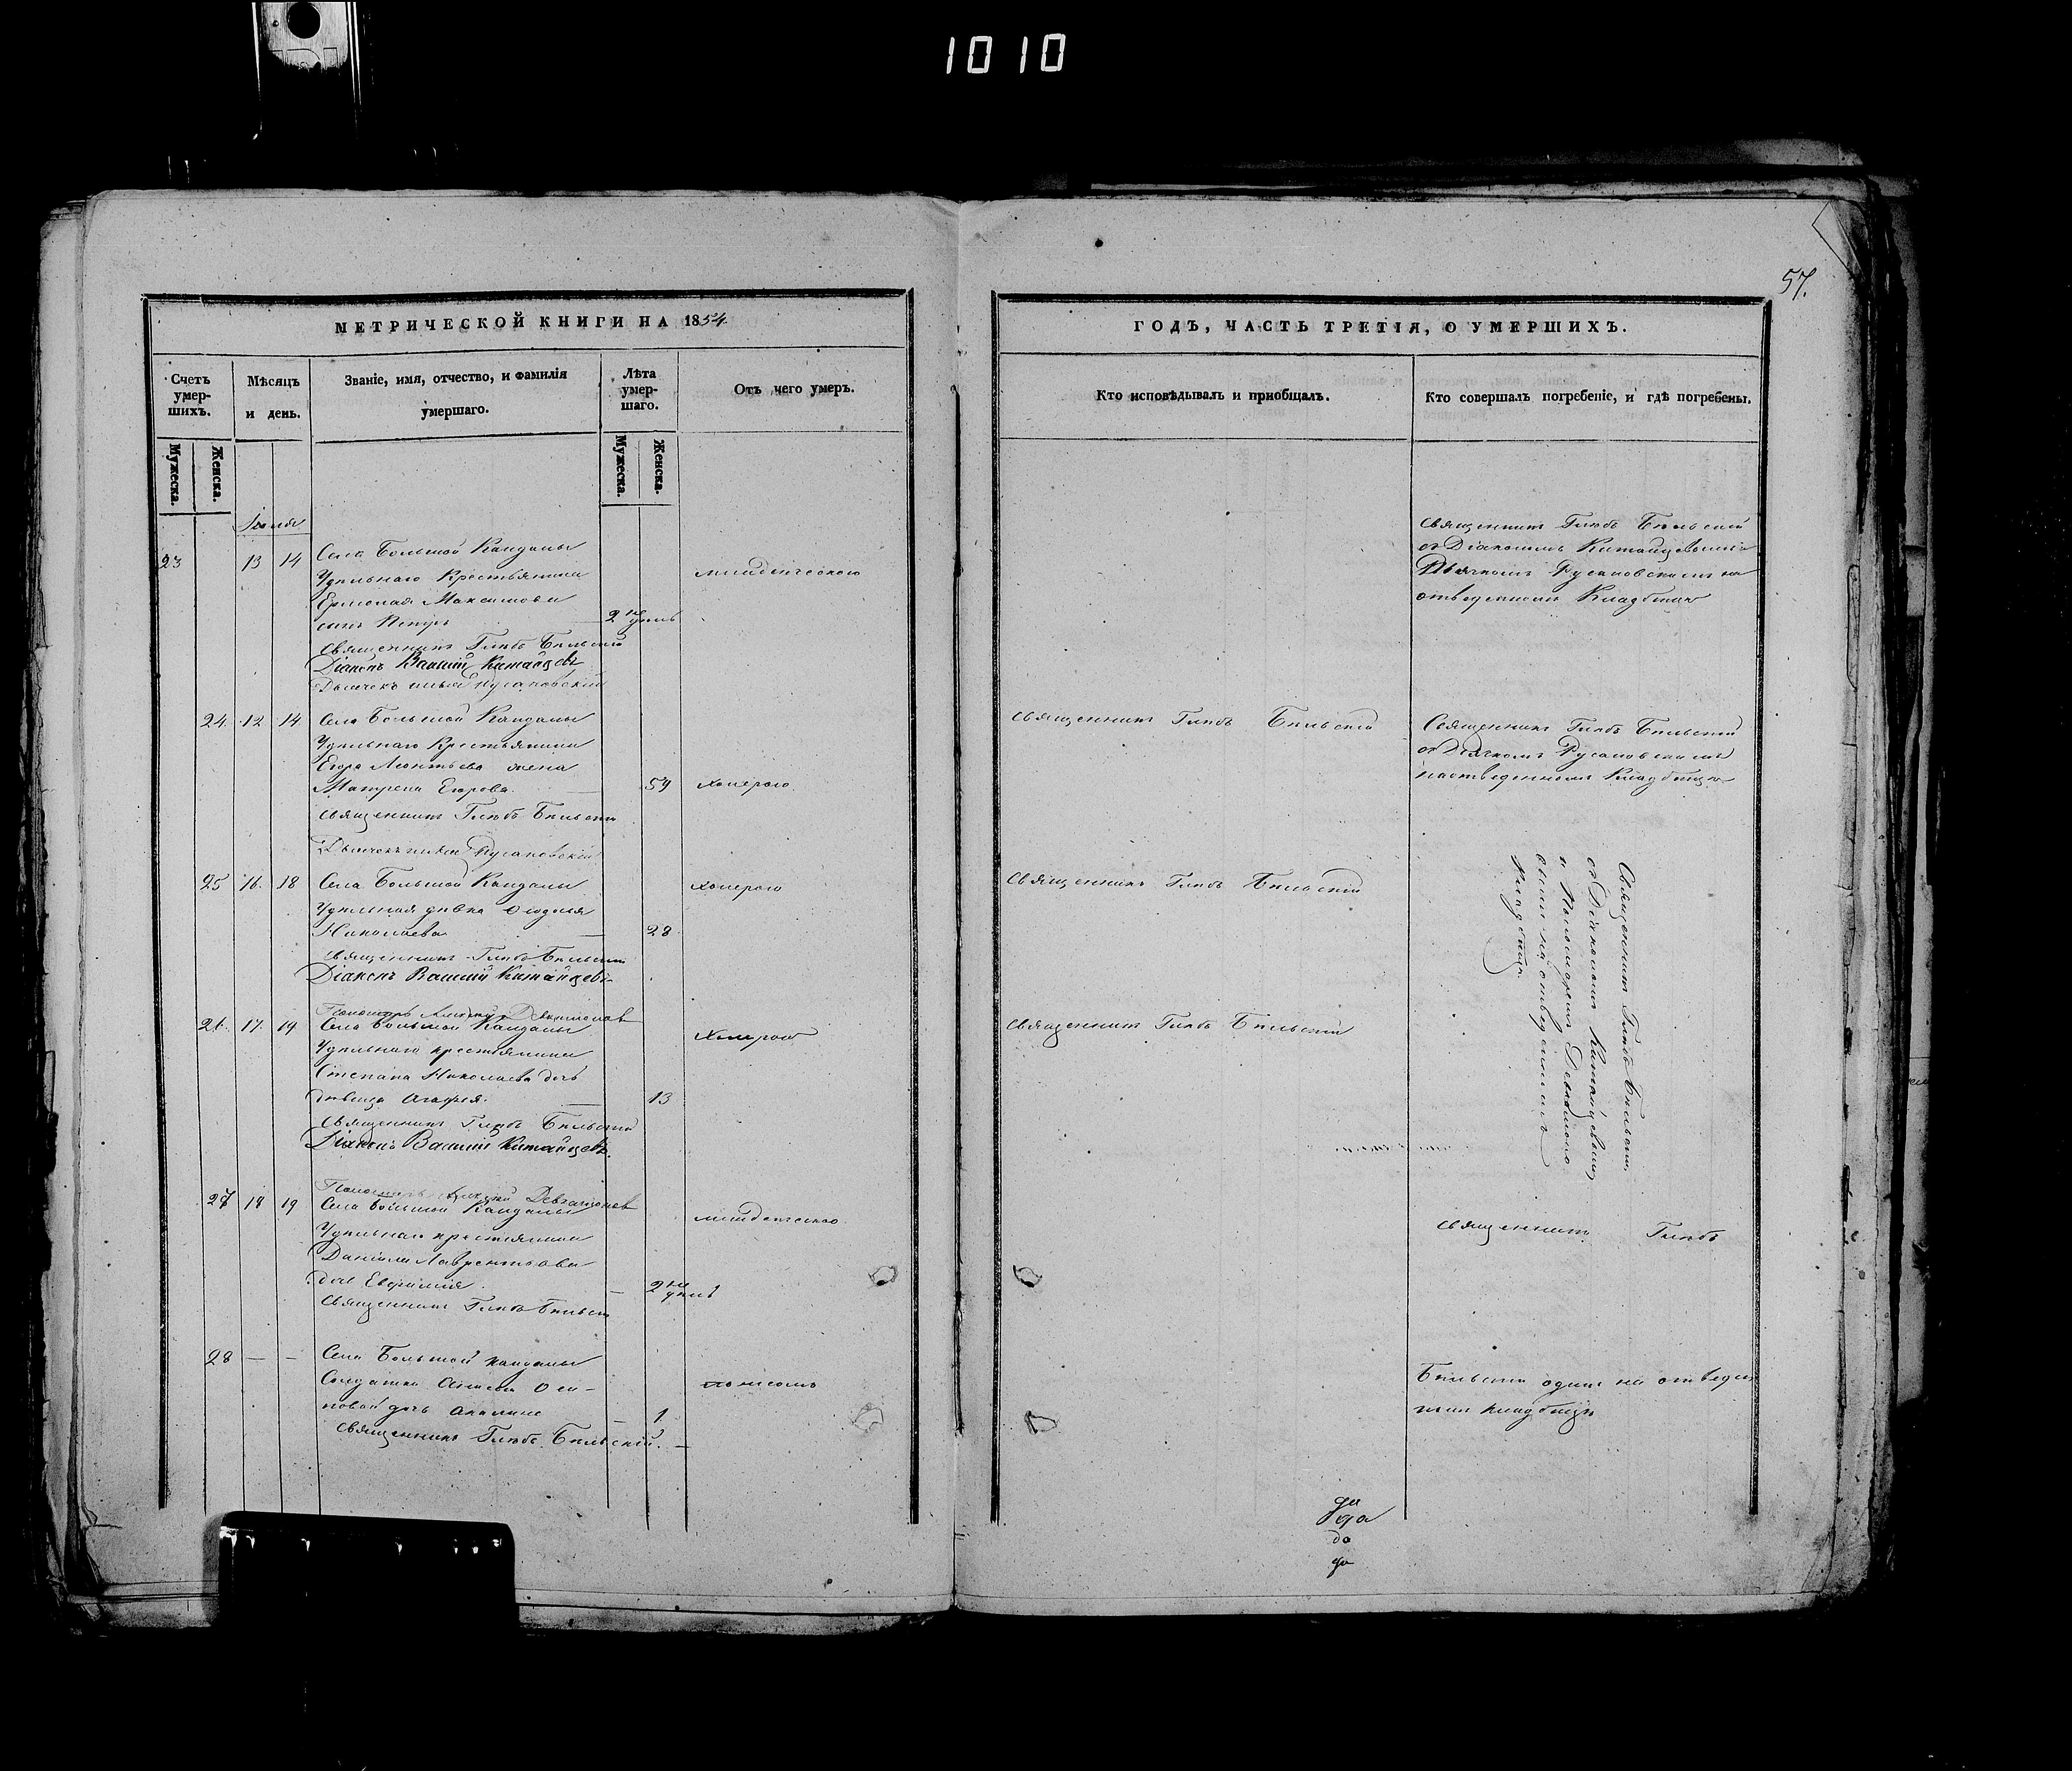 1010
57.
МЕТРИЧЕСКОЙ КНИГИ НА 1854.
Счетъ умер-
шихъ.
Мѣсяцъ
и день.
Званіе, имя, отчество, и фамилія
умершаго.
Лѣта
умер-
шаго.
Отъ чего умеръ.
Мужеска.
Женска.
Мужеска.
Женска.
23 13 14 Села Большой Кандалы
Удѣльнаго Крестьянина младенческою
Ермолая Максимова
сынъ Петръ 2 недѣль
Священникъ Глѣбъ Бѣльскій
Діаконъ Василій Китайцевъ
Дьячекъ Русановскій
24. 12 14 Села Большой Кандалы
Удѣльнаго Крестьянина
Егора Леонтьева жена
Матрена Егорова 59 холерою
Священникъ Глѣбъ Бѣльскій
Дьячекъ Русановскій
25 16. 18 Села Большой Кандалы холерою
Удѣльная дѣвка
Николаева 28
Священникъ Глѣбъ Бѣльскій
Діаконъ Василій Китайцевъ
Пономарь Алексѣй
26. 17. 19 Села Большой Кандалы
Удѣльнаго крестьянина холерою
Степана Николаева дочь
дѣвица Агафія. 13
Священникъ Глѣбъ Бѣльскій
Діаконъ Василій Китайцевъ.
Пономарь Алексѣй
27 18 19 Села Большой Кандалы
Удѣльнаго крестьянина младенческою
Даніила Лаврентьева
дочь Евфимія 2 недѣль
Священникъ Глѣбъ Бѣльскій
28 — — Села Большой Кандалы
Солдатки Оси- поносомъ
повой дочь Акилина 1.
Священникъ Глѣбъ Бѣльскій.
ГОДЪ, ЧАСТЬ ТРЕТІЯ, О УМЕРШИХЪ.
Кто исповѣдывалъ и пріобщалъ.
Кто совершалъ погребеніе, и гдѣ погребены.
Священникъ Глѣбъ Бѣльскій
съ Діакономъ Китайцевымъ
Дьячкомъ Русановскимъ на
отведенномъ Кладбищѣ
Священникъ Глѣбъ Бѣльскій
Священникъ Глѣбъ Бѣльскій
съ Дьячкомъ Русановскимъ
на отведенномъ Кладбищѣ
Священникъ Глѣбъ Бѣльскій
Священникъ Глѣбъ Бѣльскій
Священникъ Глѣбъ Бѣльскій
съ Діакономъ Китайцевымъ
и Пономаремъ
на отведенномъ
Кладбищѣ.
Священникъ Глѣбъ
Бѣльскій одинъ на отведен
номъ кладбищѣ